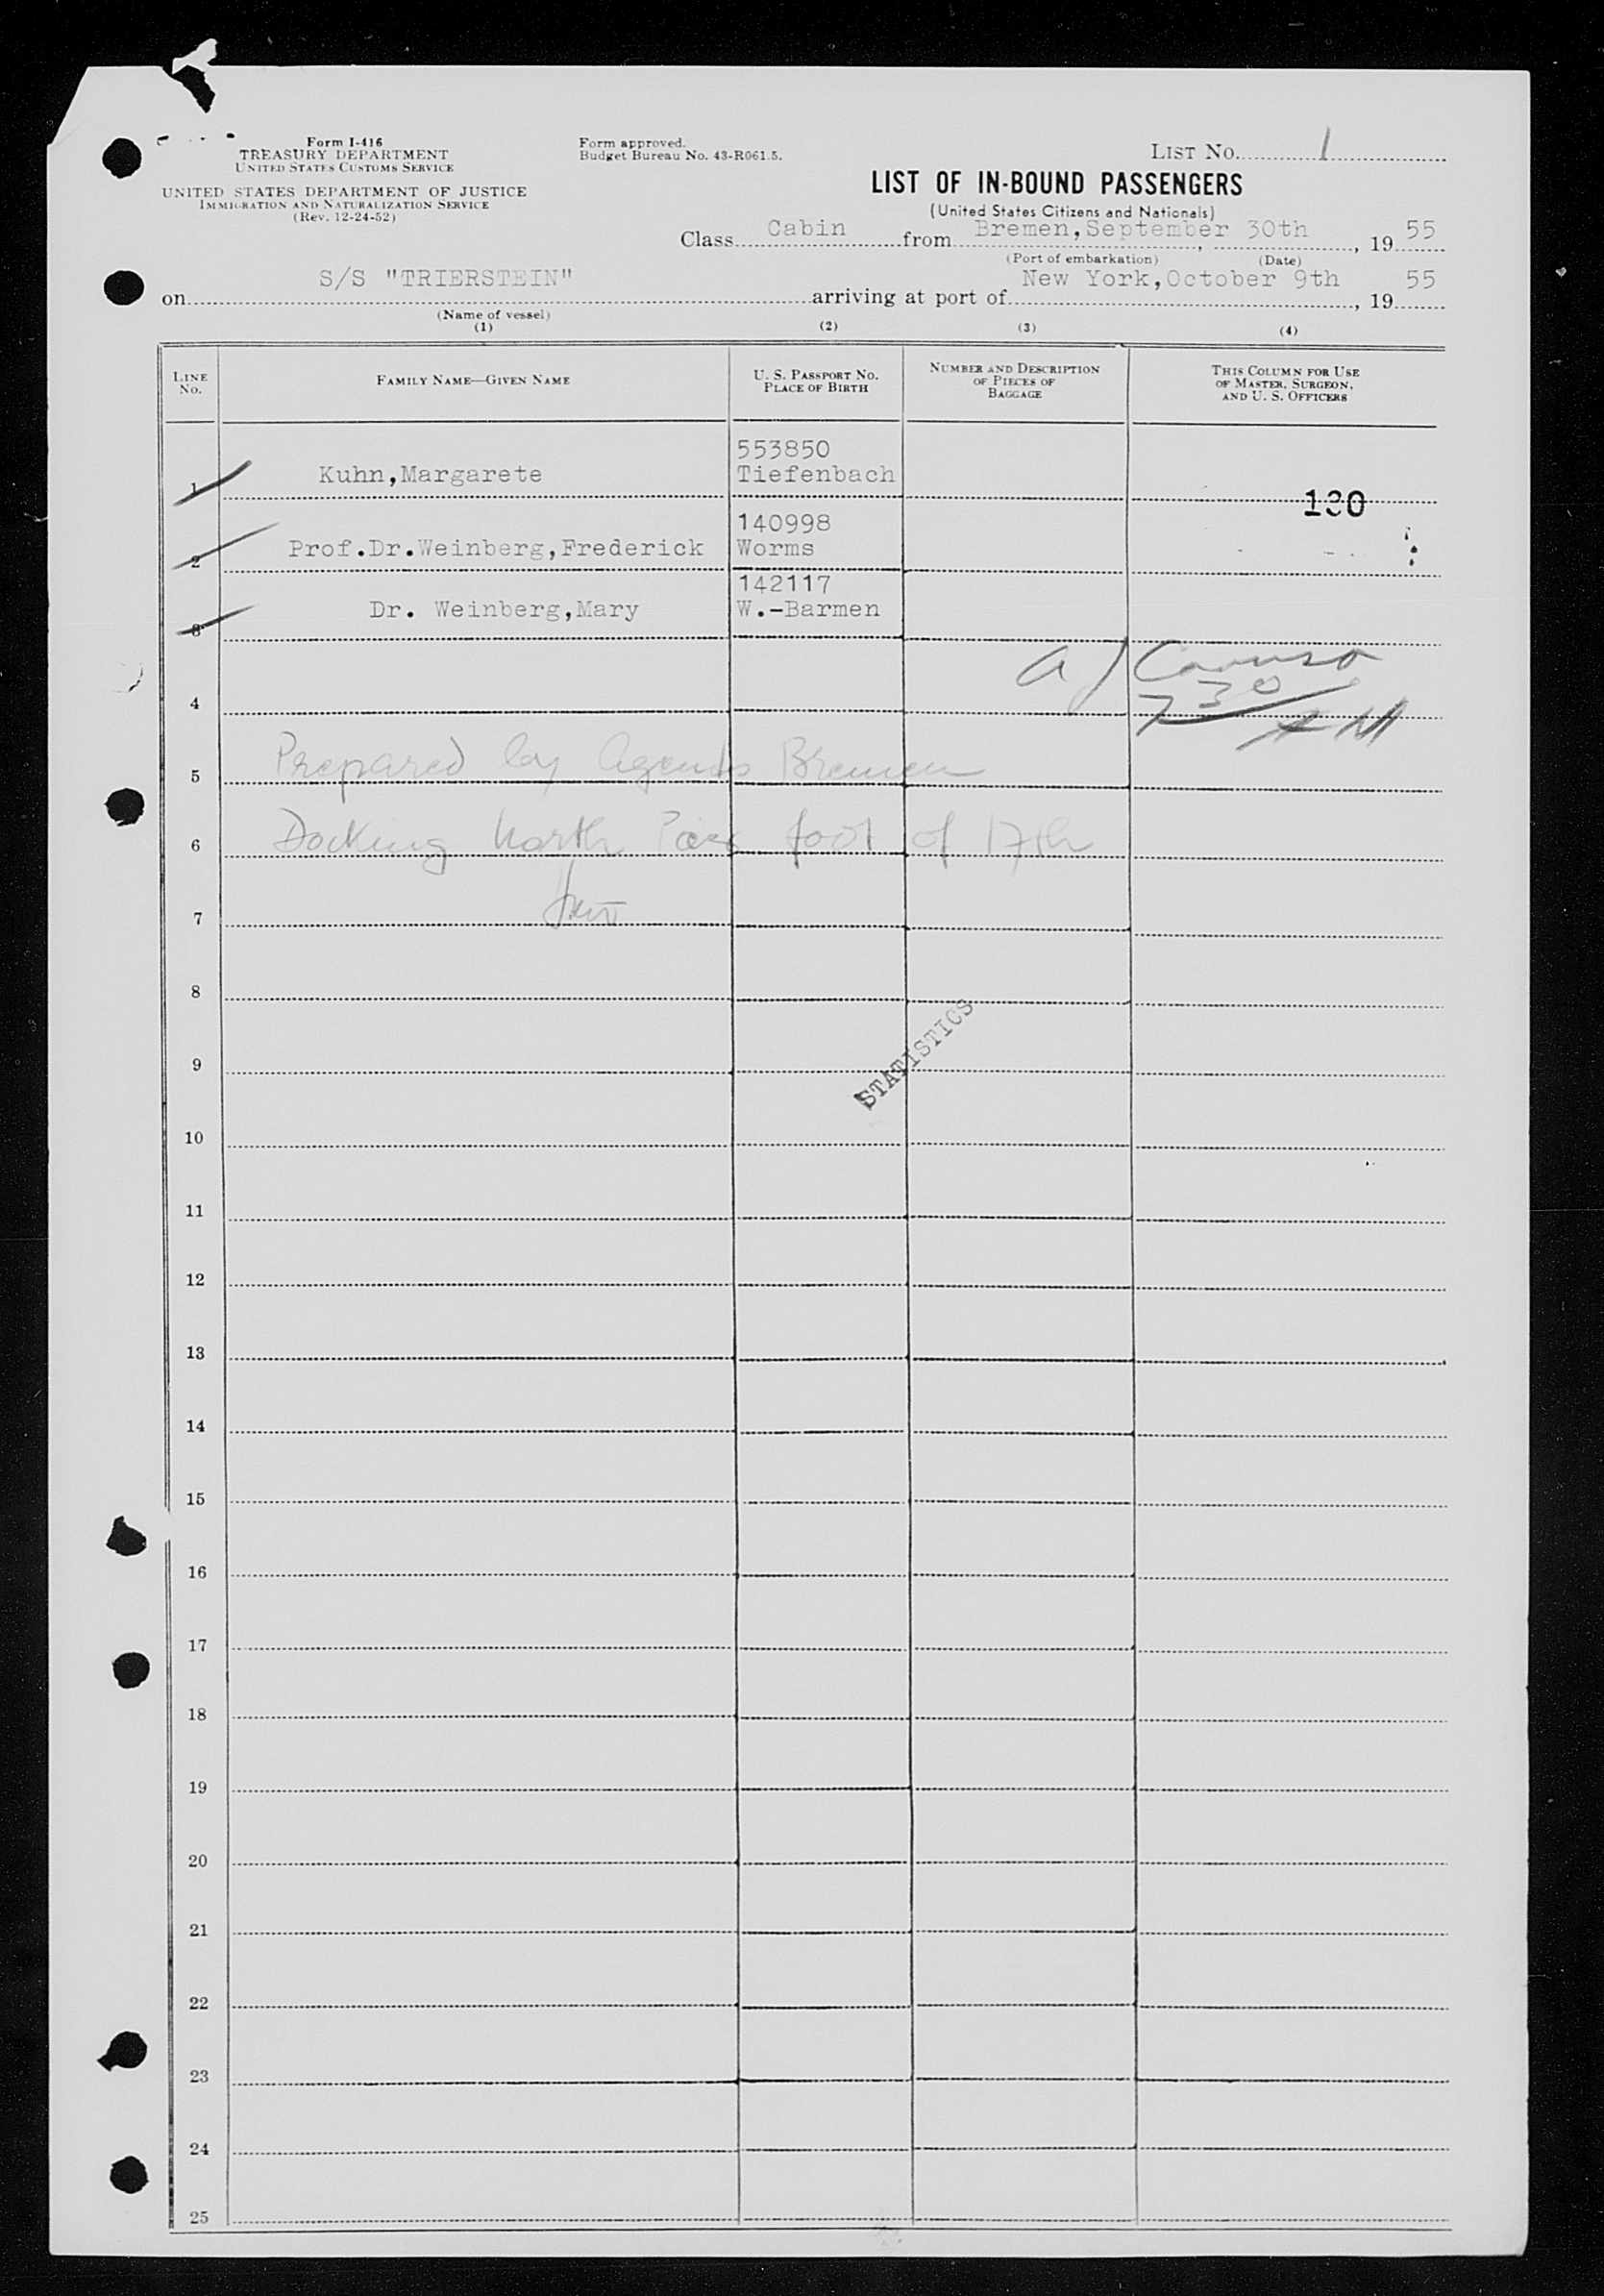 Form I-416
TREASURY DEPARTMENT
UNITED STATES CUSTOMS SERVICE
UNITED STATES DEPARTMENT OF JUSTICE
IMMIGRATION AND NATURALIZATION SERVICE
(Rev. 12-24-52)
Form approved.
Budget Bureau No. 43-R061.5.
LIST No. 1
LIST OF IN-BOUND PASSENGERS
(United States Citizens and Nationals)
Class Cabin from Bremen, September 30th, 19 55
(Port of embarkation) (Date)
on S/S "TRIERSTEIN" arriving at port of New York, October 9th, 19 55
(Name of vessel)
(1) (2) (3) (4)
LINE No. FAMILY NAME—GIVEN NAME U. S. PASSPORT No. PLACE OF BIRTH NUMBER AND DESCRIPTION OF PIECES OF BAGGAGE THIS COLUMN FOR USE OF MASTER, SURGEON, AND U. S. OFFICERS
553850
1 Kuhn,Margarete Tiefenbach
130
140998
2 Prof.Dr.Weinberg,Frederick Worms
142117
3 Dr. Weinberg,Mary W.-Barmen
A J Caruso
730
4
5 Prepared by Agents Bremen
6 Docking North foot of 17th
7
8
STATISTICS
9
10
11
12
13
14
15
16
17
18
19
20
21
22
23
24
25